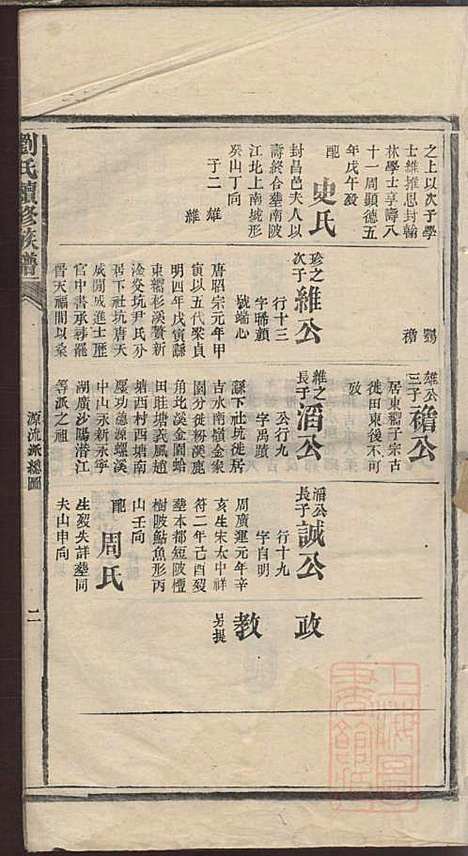 劉氏續修族譜
源流派總圖
二
之上以次子學
士維推恩封翰
林學士享壽八
十一周顯德五
年戊午歿
配
史氏
封昌邑夫人以
壽終合塟南陂
江北上南城形
癸山丁向
子二
雄
維
珍之
次子
維公
行十三
字聯顯
號端心
唐昭宗元年甲
寅以五代梁貞
明四年戊寅縣
東穤杉溪贅新
淦癸坑尹氏分
居下社坑唐天
成間咸進士歷
官中書承尋罷
晉天福間以桒
鸚
穭
維之
長子
滔公
公行九
字禹蹟
縣下社坑徙居
古水南嶺金桒
園分徙粉溪鹿
角北溪金園蛤
田㽵塘义武風趙
塘西村西塘南
壓功德源螺溪
中山永新永寧
湖廣沙陽潛江
等派之祖
雄公
三子
穭公
居東穤子宗古
徙田東後不可
攷
滔公
長子
誠公
行十九
字自明
周廣運元年辛
亥生宋太中祥
符二年己酉歿
塟本都短陂檀
樹陂鮎魚形丙
山壬向
配
周氏
生歿失詳塟同
夫山申向
政
教
另提
上海圖
書館藏